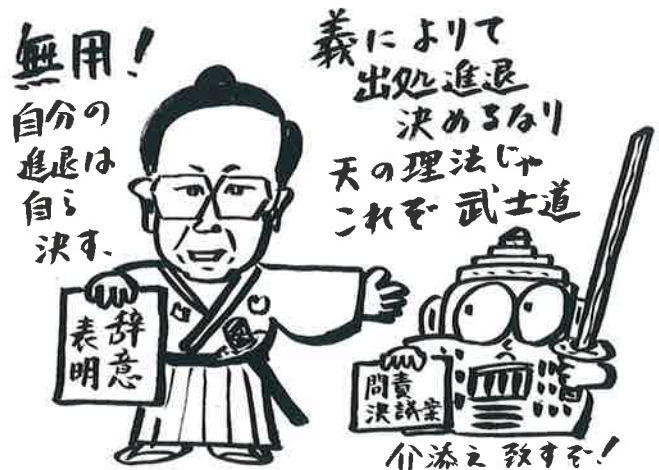 無用!
自分の
進退は
自ら
決す、
義によりて
出処進退
決めるなり
天の理法じゃ
これぞ 武士道
辞意
表明
問責
決議案
介添え致すぞ!